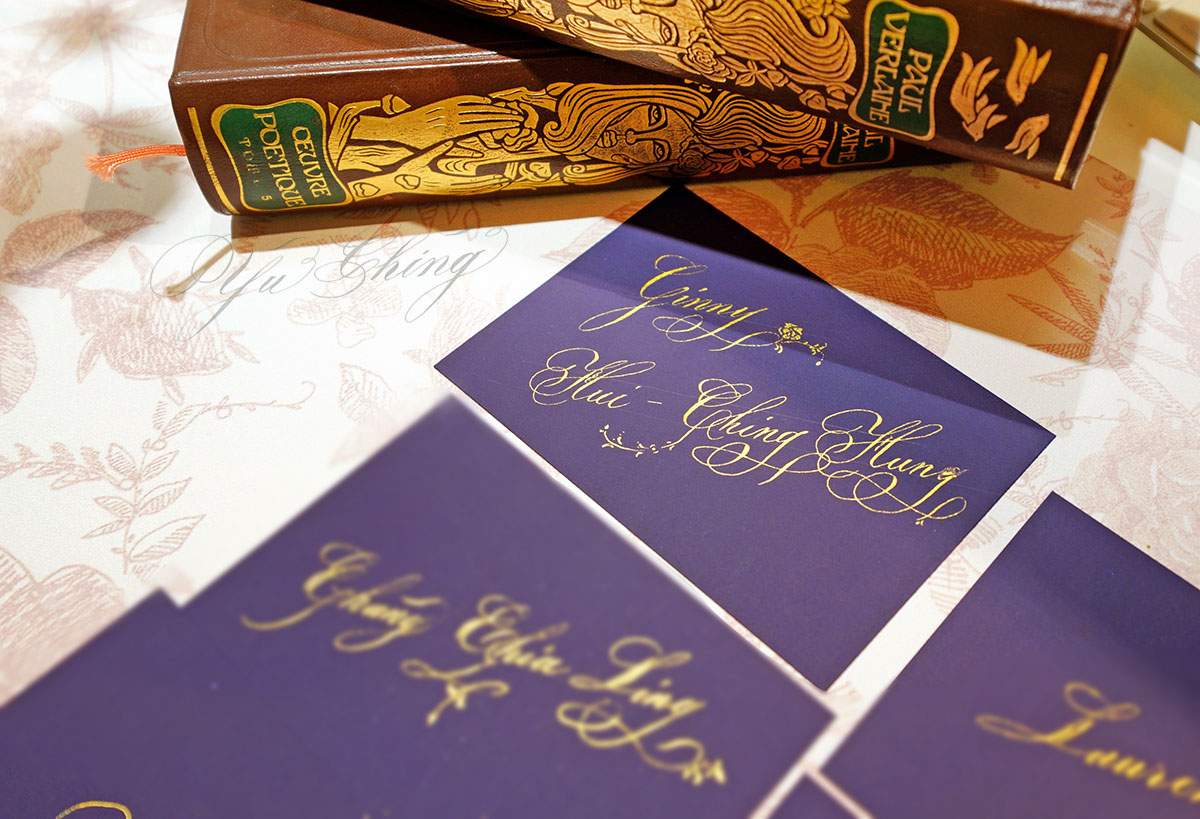 PAUL
VERLAINE
OEUVRE
POETIQUE
TOME 5
LAINE
Yu Ching
Ginny
Hui - Ching Hung
Chang Chia Ling
Lauren